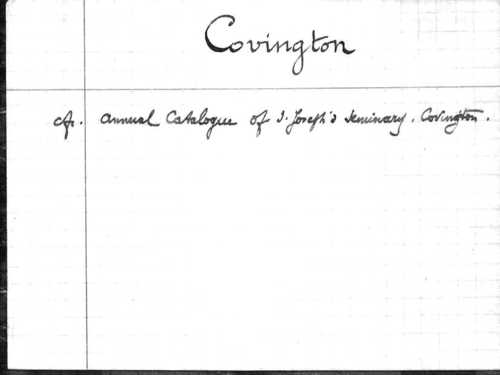 Covington
cf. Annual Catalogue of S. Joseph's Seminary. Covington.